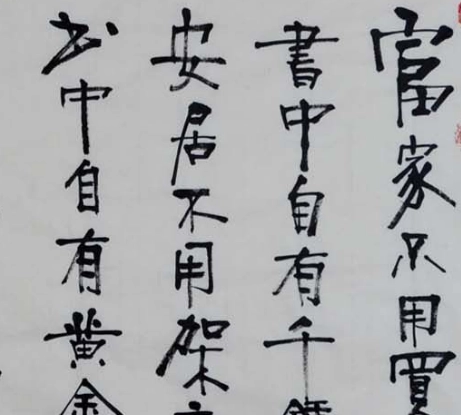 富家不用買
書中自有千
安居不用架
书中自有黄金